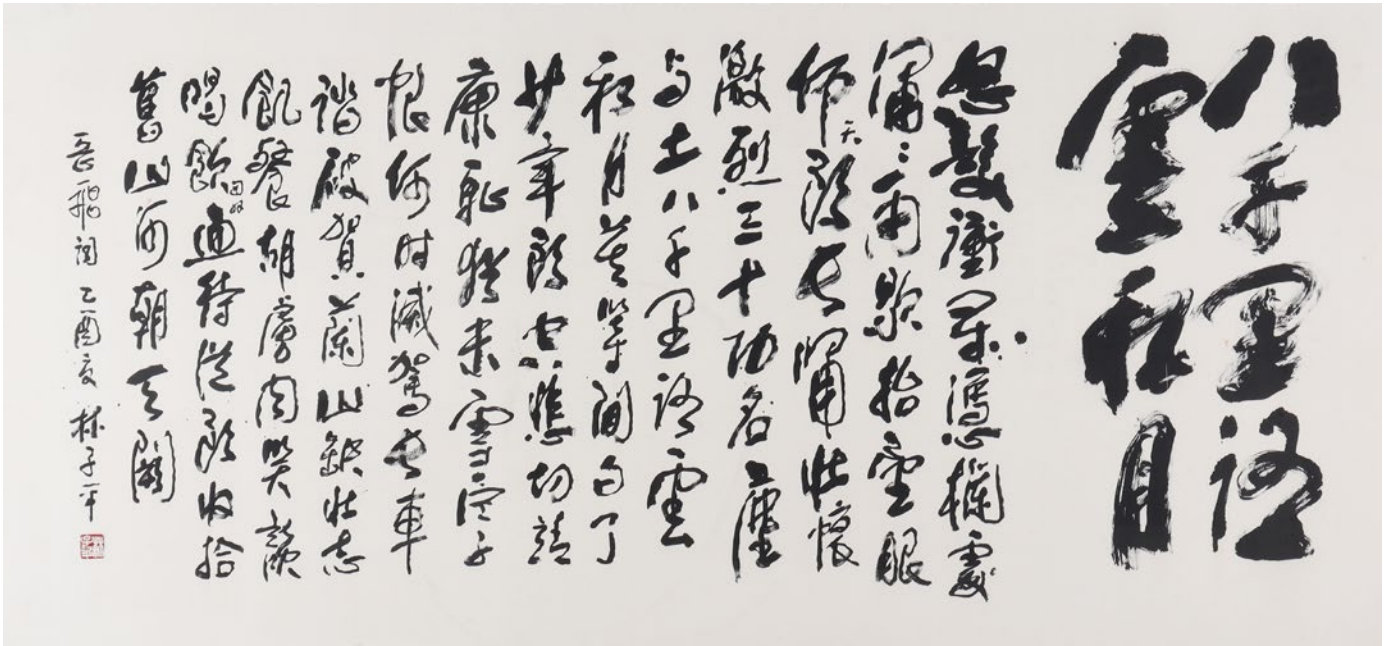 八千里路
雲和月
怒髮衝冠憑欄處
瀟瀟雨歇抬望眼
仰天頭長嘯壯懷
激烈三十功名塵
与土八千里路雲
和月莫等閑白了
少年頭空悲切靖
康恥猶未雪臣子
恨何時滅駕長車
踏破賀蘭山缺壯志
飢餐胡虜肉笑談
渴飲匈奴血待從頭收拾
舊山河朝天闕
岳飛詞 乙酉夏 林子平